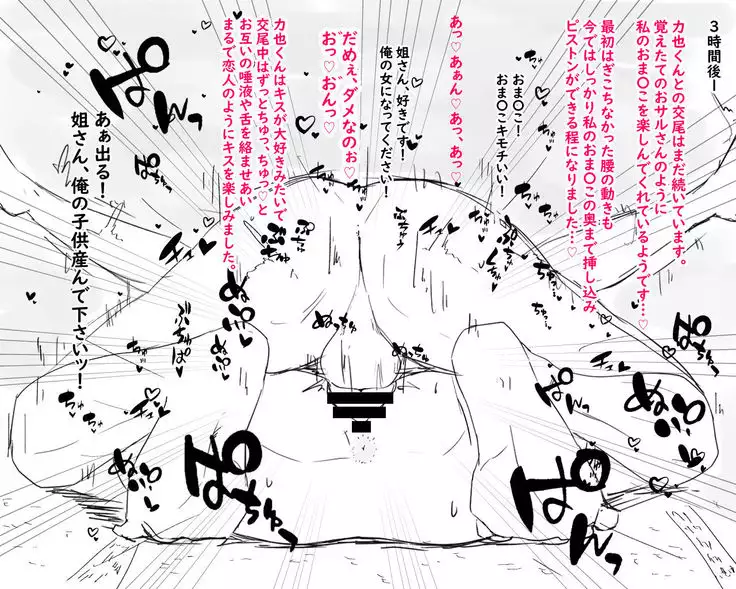 3時間後ー
力也くんとの交尾はまだ続いています。
覚えたてのおサルさんのように
私のおま〇こを楽しんでくれているようです…♡
最初はぎこちなかった腰の動きも
今ではしっかり私のおま〇この奥まで挿し込み
ピストンができる程になりました…♡
おま〇こ!
おま〇こキモチいい!
あっ♡あぁん♡あっ、あっ♡
姐さん、好きです!
俺の女になってください!
だめぇ、ダメなのぉ♡
おっ♡お゙んっ♡
力也くんはキスが大好きみたいで
交尾中はずっとちゅっ、ちゅっ♡と
お互いの唾液や舌を絡ませあい
まるで恋人のようにキスを楽しみました。
あぁ出る!
姐さん、俺の子供産んで下さいッ!
ぱんっ
ぱんっ
ぱんっ
ぱんっ
ぬっちゅ
ぬっちゅ
ぶちゅっぱ
チュッ
ちゅっ